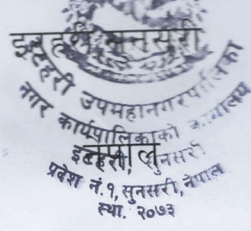 इटहरी, सुनसरी
इटहरी उपमहानगरपालिका
नगर कार्यपालिकाको कार्यालय
इटहरी, सुनसरी
प्रदेश नं. १, सुनसरी, नेपाल
स्था. २०७३